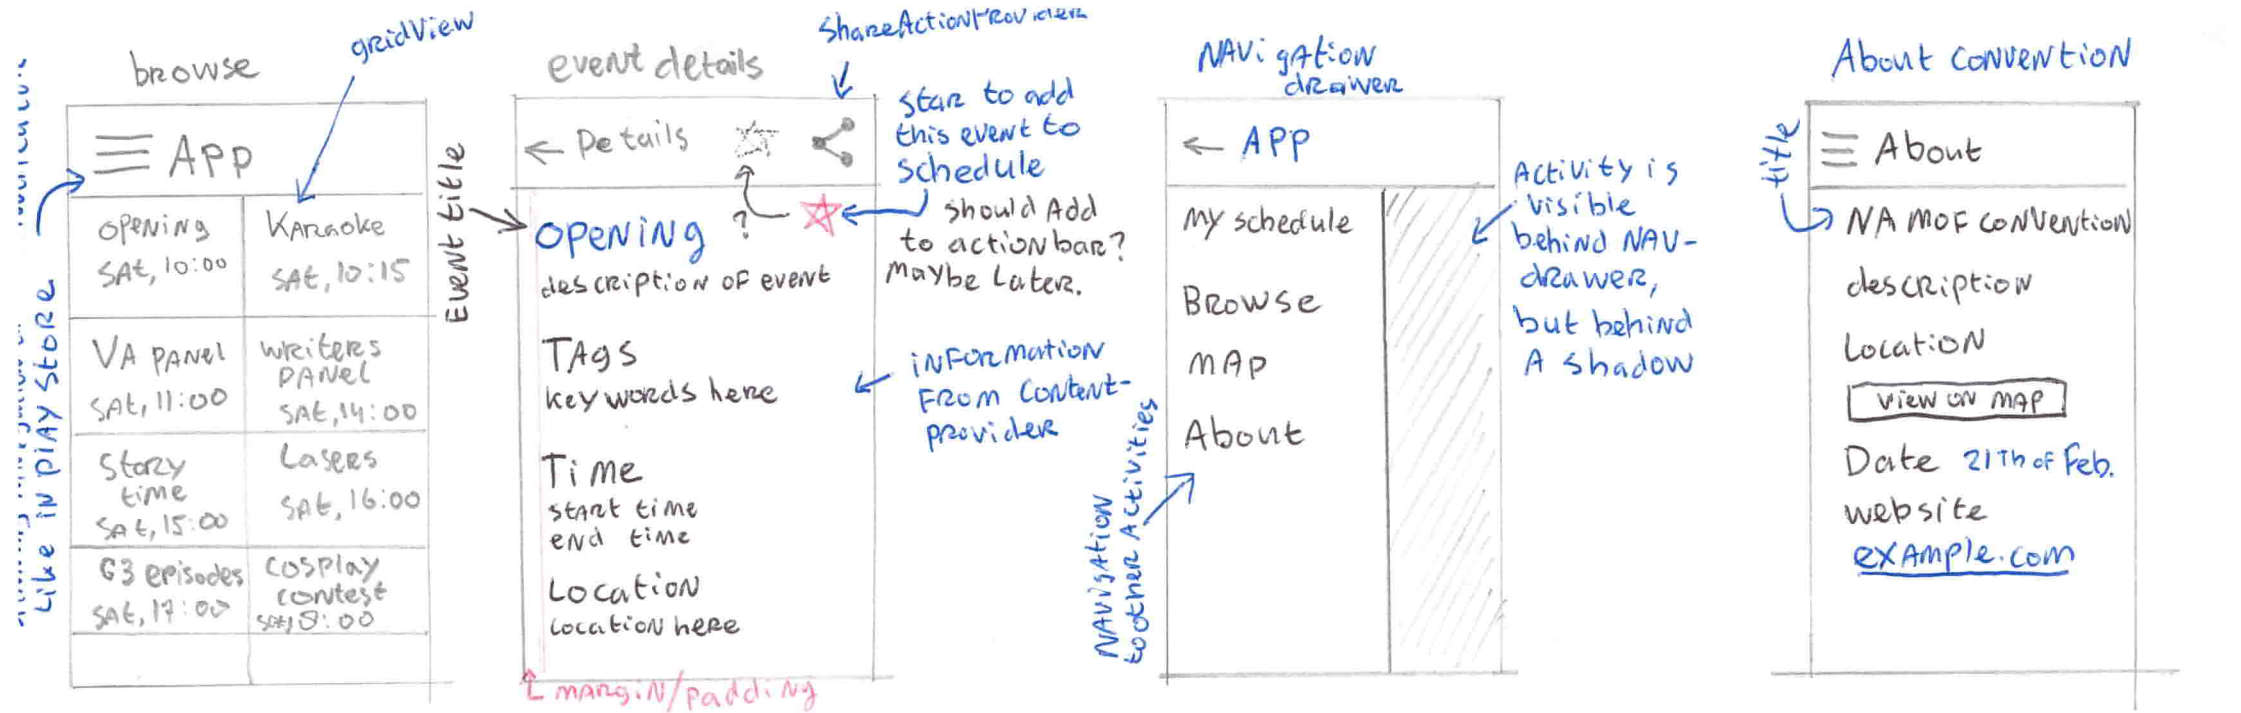 browse
gridView
App
opening
SAt, 10:00
Karaoke
SAt, 10:15
VA PANEL
SAt, 11:00
writers
PANEL
SAt, 14:00
Story
time
SAt, 15:00
Lasers
SAt, 16:00
G3 episodes
SAt, 17:00
cosplay
contest
Like in play store
event details
ShareActionProvider
Details
Event title
opening
?
description of event
TAgs
keywords here
Time
start time
end time
Location
Location here
margin/padding
Star to add
this event to
schedule
should Add
to actionbar?
Maybe Later.
information
From content-
provider
NAVigAtion
drawer
APP
My schedule
Browse
MAp
About
NAVigAtion
to other Activities
Activity is
visible
behind NAV-
drawer,
but behind
A shadow
About convention
title
About
NAMOF convention
description
Location
View on MAp
Date 21Th of Feb.
website
example.com